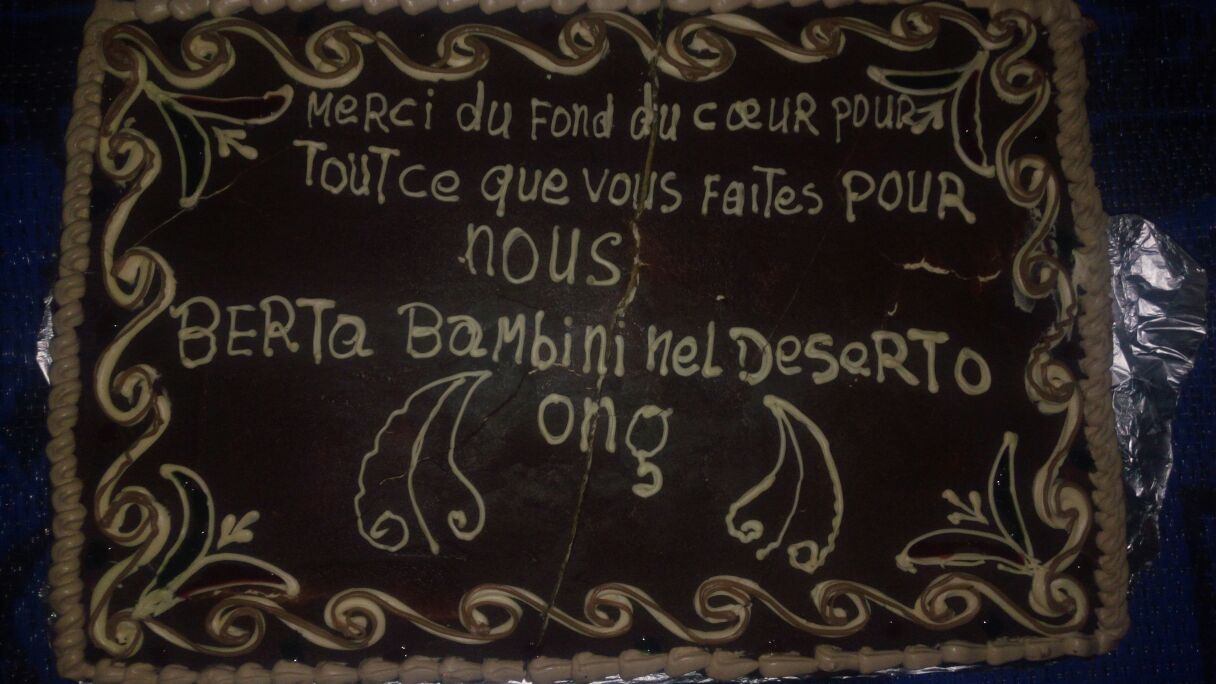 Merci du Fond du cœur pour
Tout ce que vous Faites pour
nous
BERTa Bambini nel DeserTo
ong